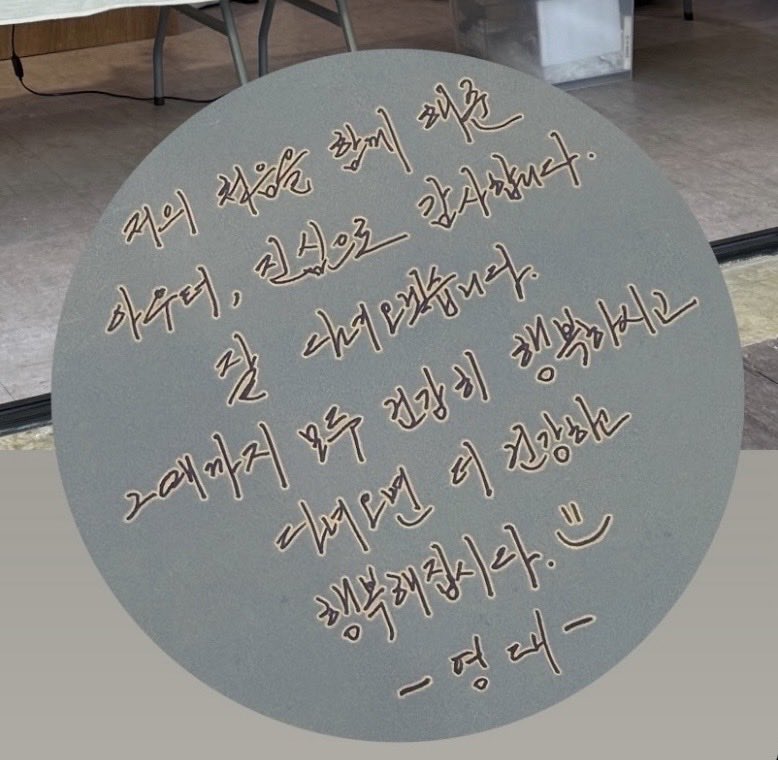 저의 처음을 함께 해준
아우터, 진심으로 감사합니다.
잘 다녀오겠습니다.
그때까지 모두 건강히 행복하시고
다녀오면 더 건강하고
행복해집시다. :)
- 영대 -